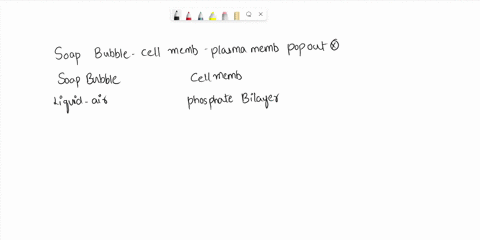 Soap Bubble - cell memb - plasma memb pop out ⓧ
Soap Bubble Cell memb
Liquid - air phosphate Bilayer